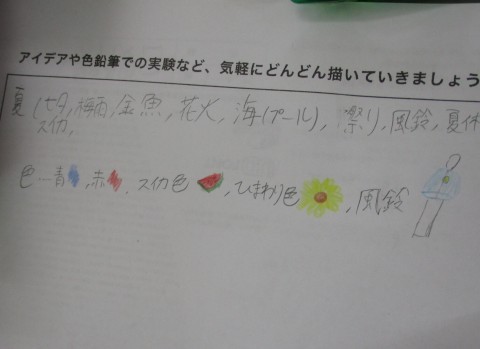 アイデアや色鉛筆での実験など、気軽にどんどん描いていきましょう
夏 (七夕, 梅雨, 金魚, 花火, 海(プール), 祭り, 風鈴, 夏休
スイカ,
色—青, 赤, スイカ色, ひまわり色, 風鈴